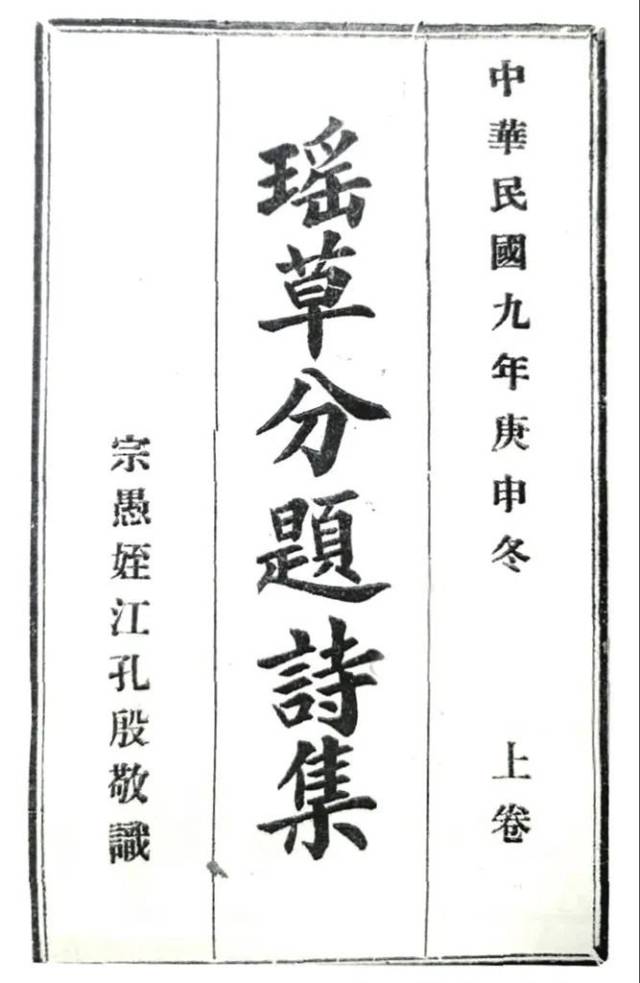 中華民國九年庚申冬 上卷
瑶草分題詩集
宗愚姪江孔殷敬識